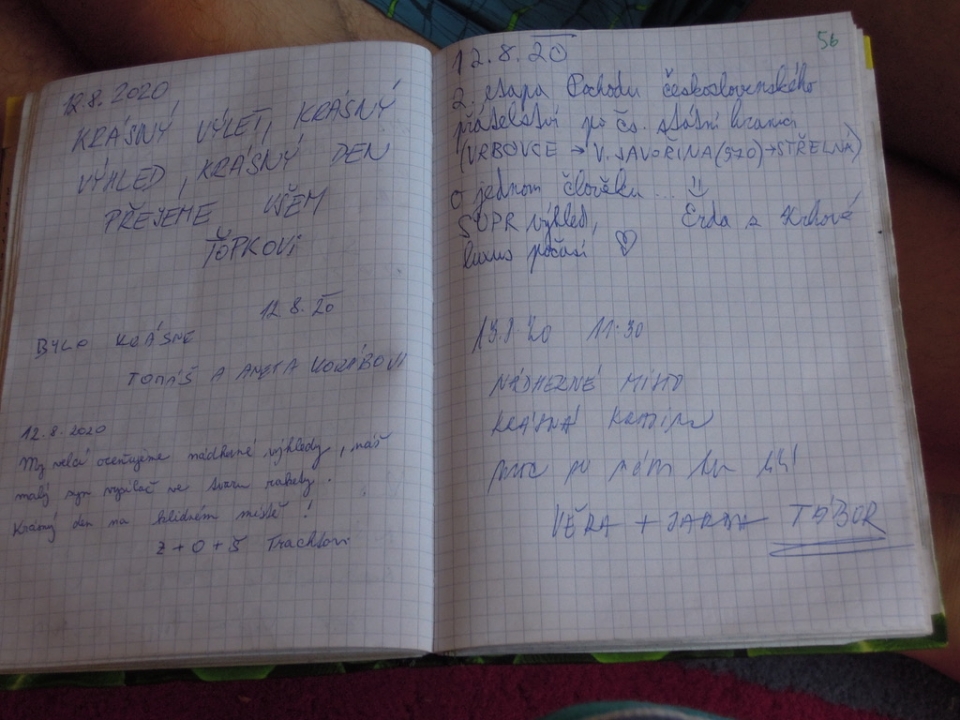 12.8.2020
KRÁSNÝ VÝLET, KRÁSNÝ
VÝHLED, KRÁSNÝ DEN
PŘEJEME VŠEM
ŤOPKOVI
12.8.20
BYLO KRÁSNĚ
TOMÁŠ A ANETA
12.8.2020
My velcí oceňujeme nádherné výhledy, náš
malý syn ve tvaru rakety.
Krásný den na klidném místě!
Z + O + Š Trachtovi
56
12.8.20
2. etapa Pochodu československého
přátelství po čs. státní hranici
(VRBOVCE → V. JAVOŘINA (970) → STŘELNÁ)
O jednom člověku...
SUPR výhled, Erda z Krhové
luxus počasí ♡
13.8.20 11:30
NÁDHERNÉ MÍSTO
KRÁSNÁ KRAJINA
MOC
VĚRA + JARDA TÁBOR